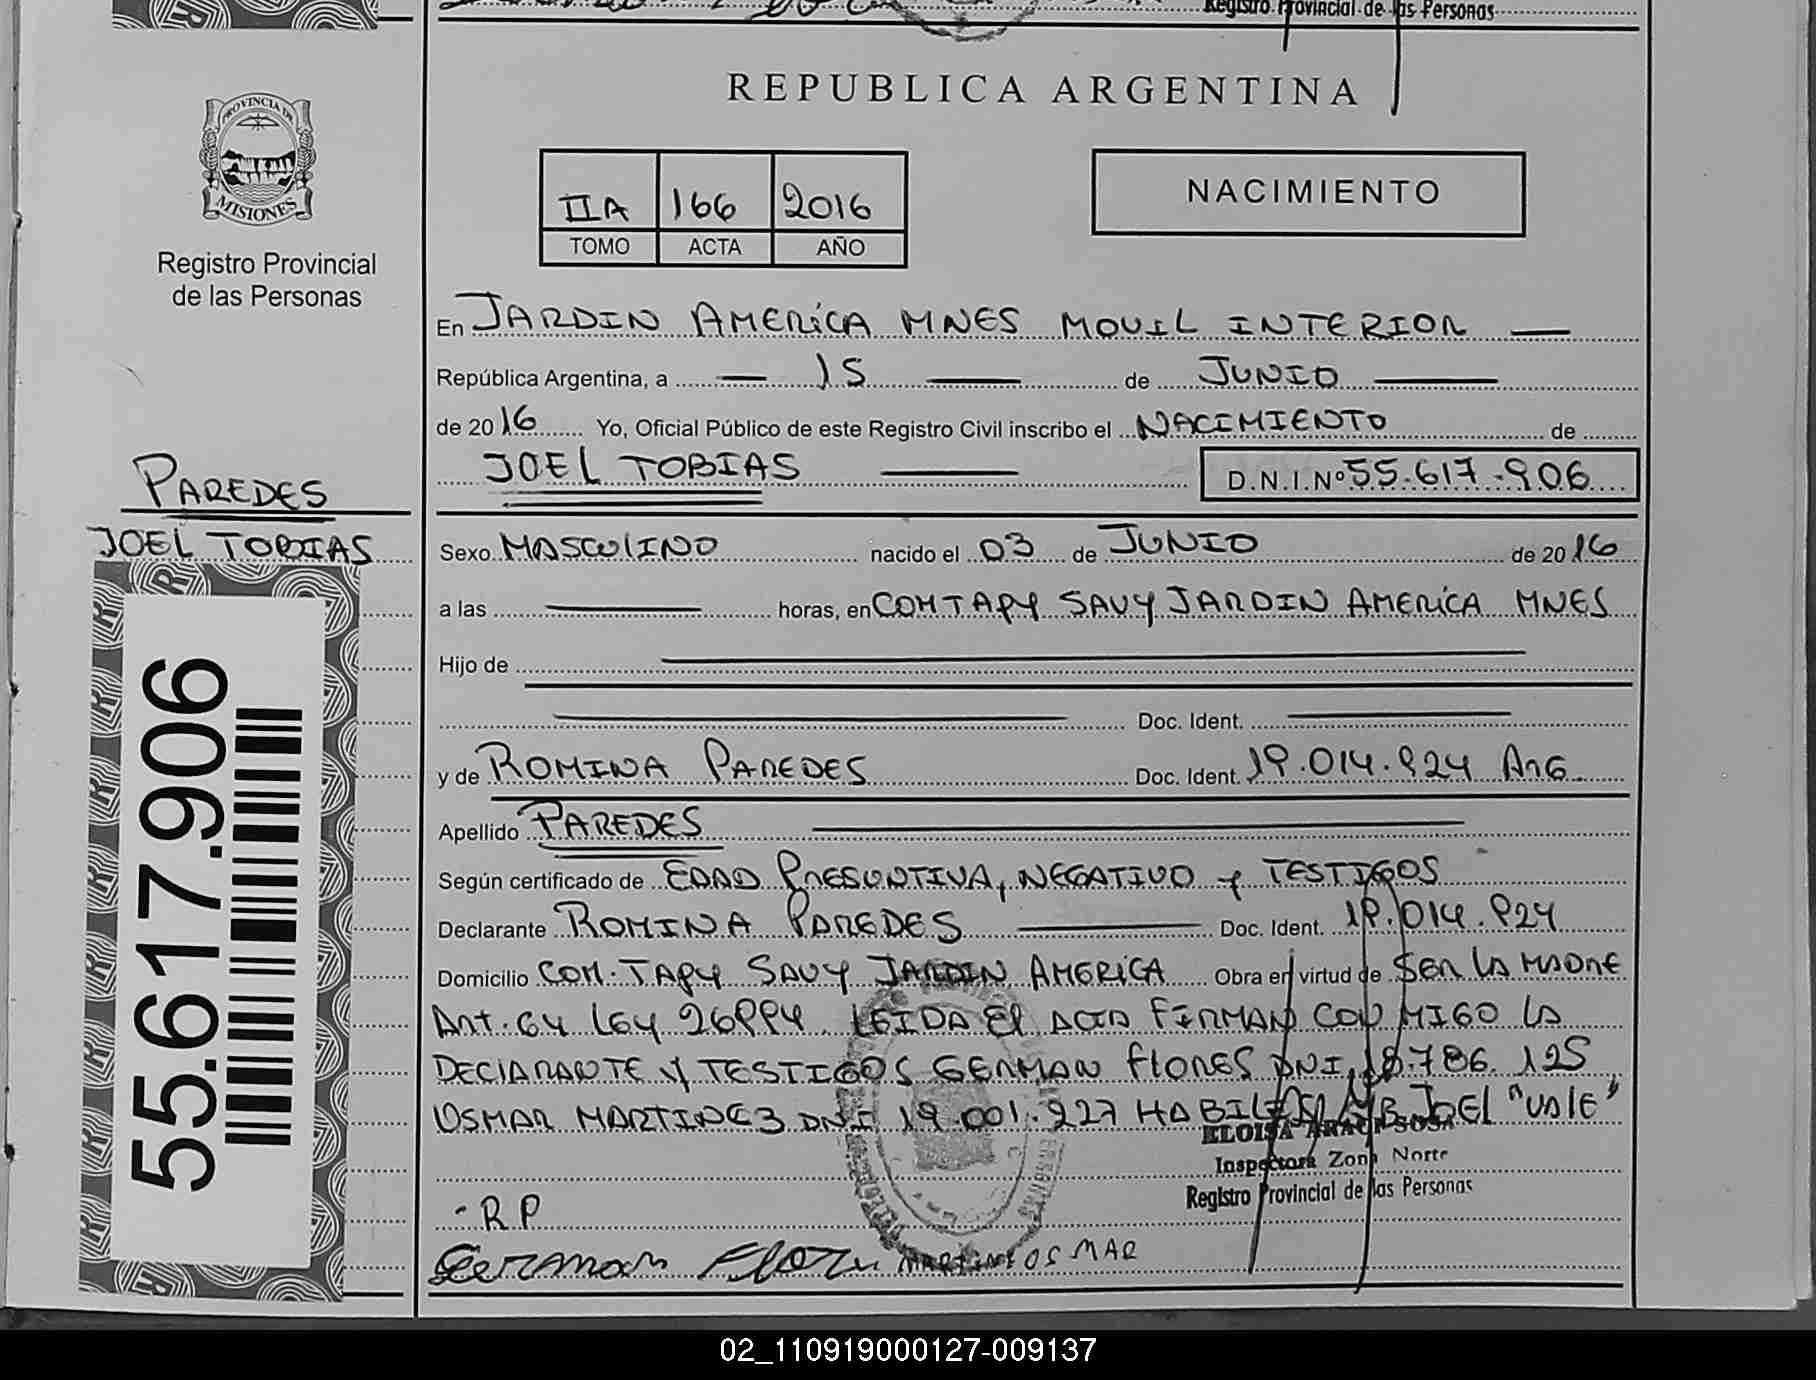 Registro Provincial de las Personas
REPUBLICA ARGENTINA
PROVINCIA DE
MISIONES
Registro Provincial
de las Personas
IIA 166 2016
TOMO ACTA AÑO
NACIMIENTO
En JARDIN AMERICA MNES MOVIL INTERIOR
República Argentina, a 15 de JUNIO
de 2016 Yo, Oficial Público de este Registro Civil inscribo el NACIMIENTO de
JOEL TOBIAS D.N.I.Nº 55.617.906
PAREDES
JOEL TOBIAS
55.617.906
Sexo MASCULINO nacido el 03 de JUNIO de 2016
a las horas, en COM TAPY SAVY JARDIN AMERICA MNES
Hijo de
Doc. Ident.
y de ROMINA PAREDES Doc. Ident. 19.014.924 ARG
Apellido PAREDES
Según certificado de EDAD PRESUNTIVA, NEGATIVO Y TESTIGOS
Declarante ROMINA PAREDES Doc. Ident. 19.014.924
Domicilio COM. TAPY SAVY JARDIN AMERICA Obra en virtud de SER LA MADRE
ART. 64 LEY 26994 LEIDA EL ACTA FIRMAN CONMIGO LA
DECLARANTE Y TESTIGOS GERMAN FLORES DNI 18.786.125
OSMAR MARTINEZ DNI 19.001.227 JOEL "VALE"
ELOISA SOSA
Inspectora Zona Norte
Registro Provincial de las Personas
RP
German Flores OSMAR
02_110919000127-009137